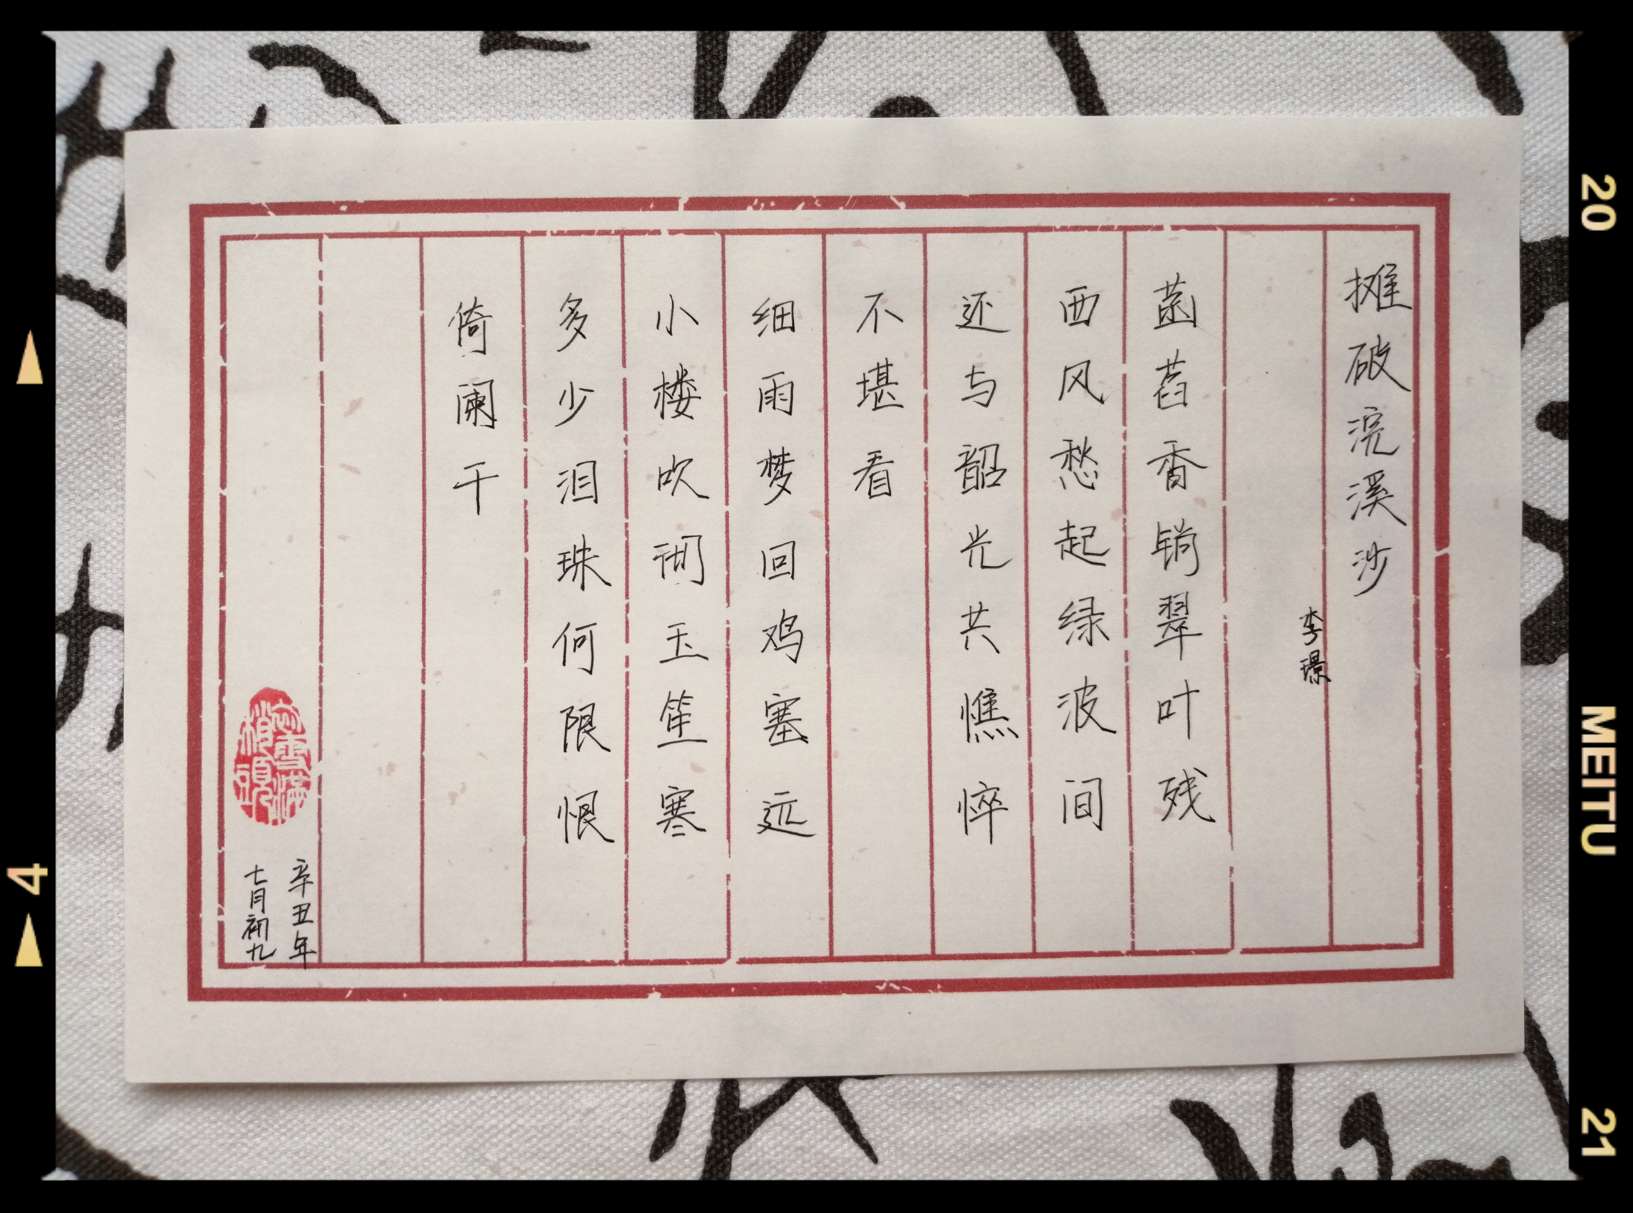 摊破浣溪沙
李璟
菡萏香销翠叶残
西风愁起绿波间
还与韶光共憔悴
不堪看
细雨梦回鸡塞远
小楼吹彻玉笙寒
多少泪珠何限恨
倚阑干
辛丑年
七月初九
20
MEITU
21
4